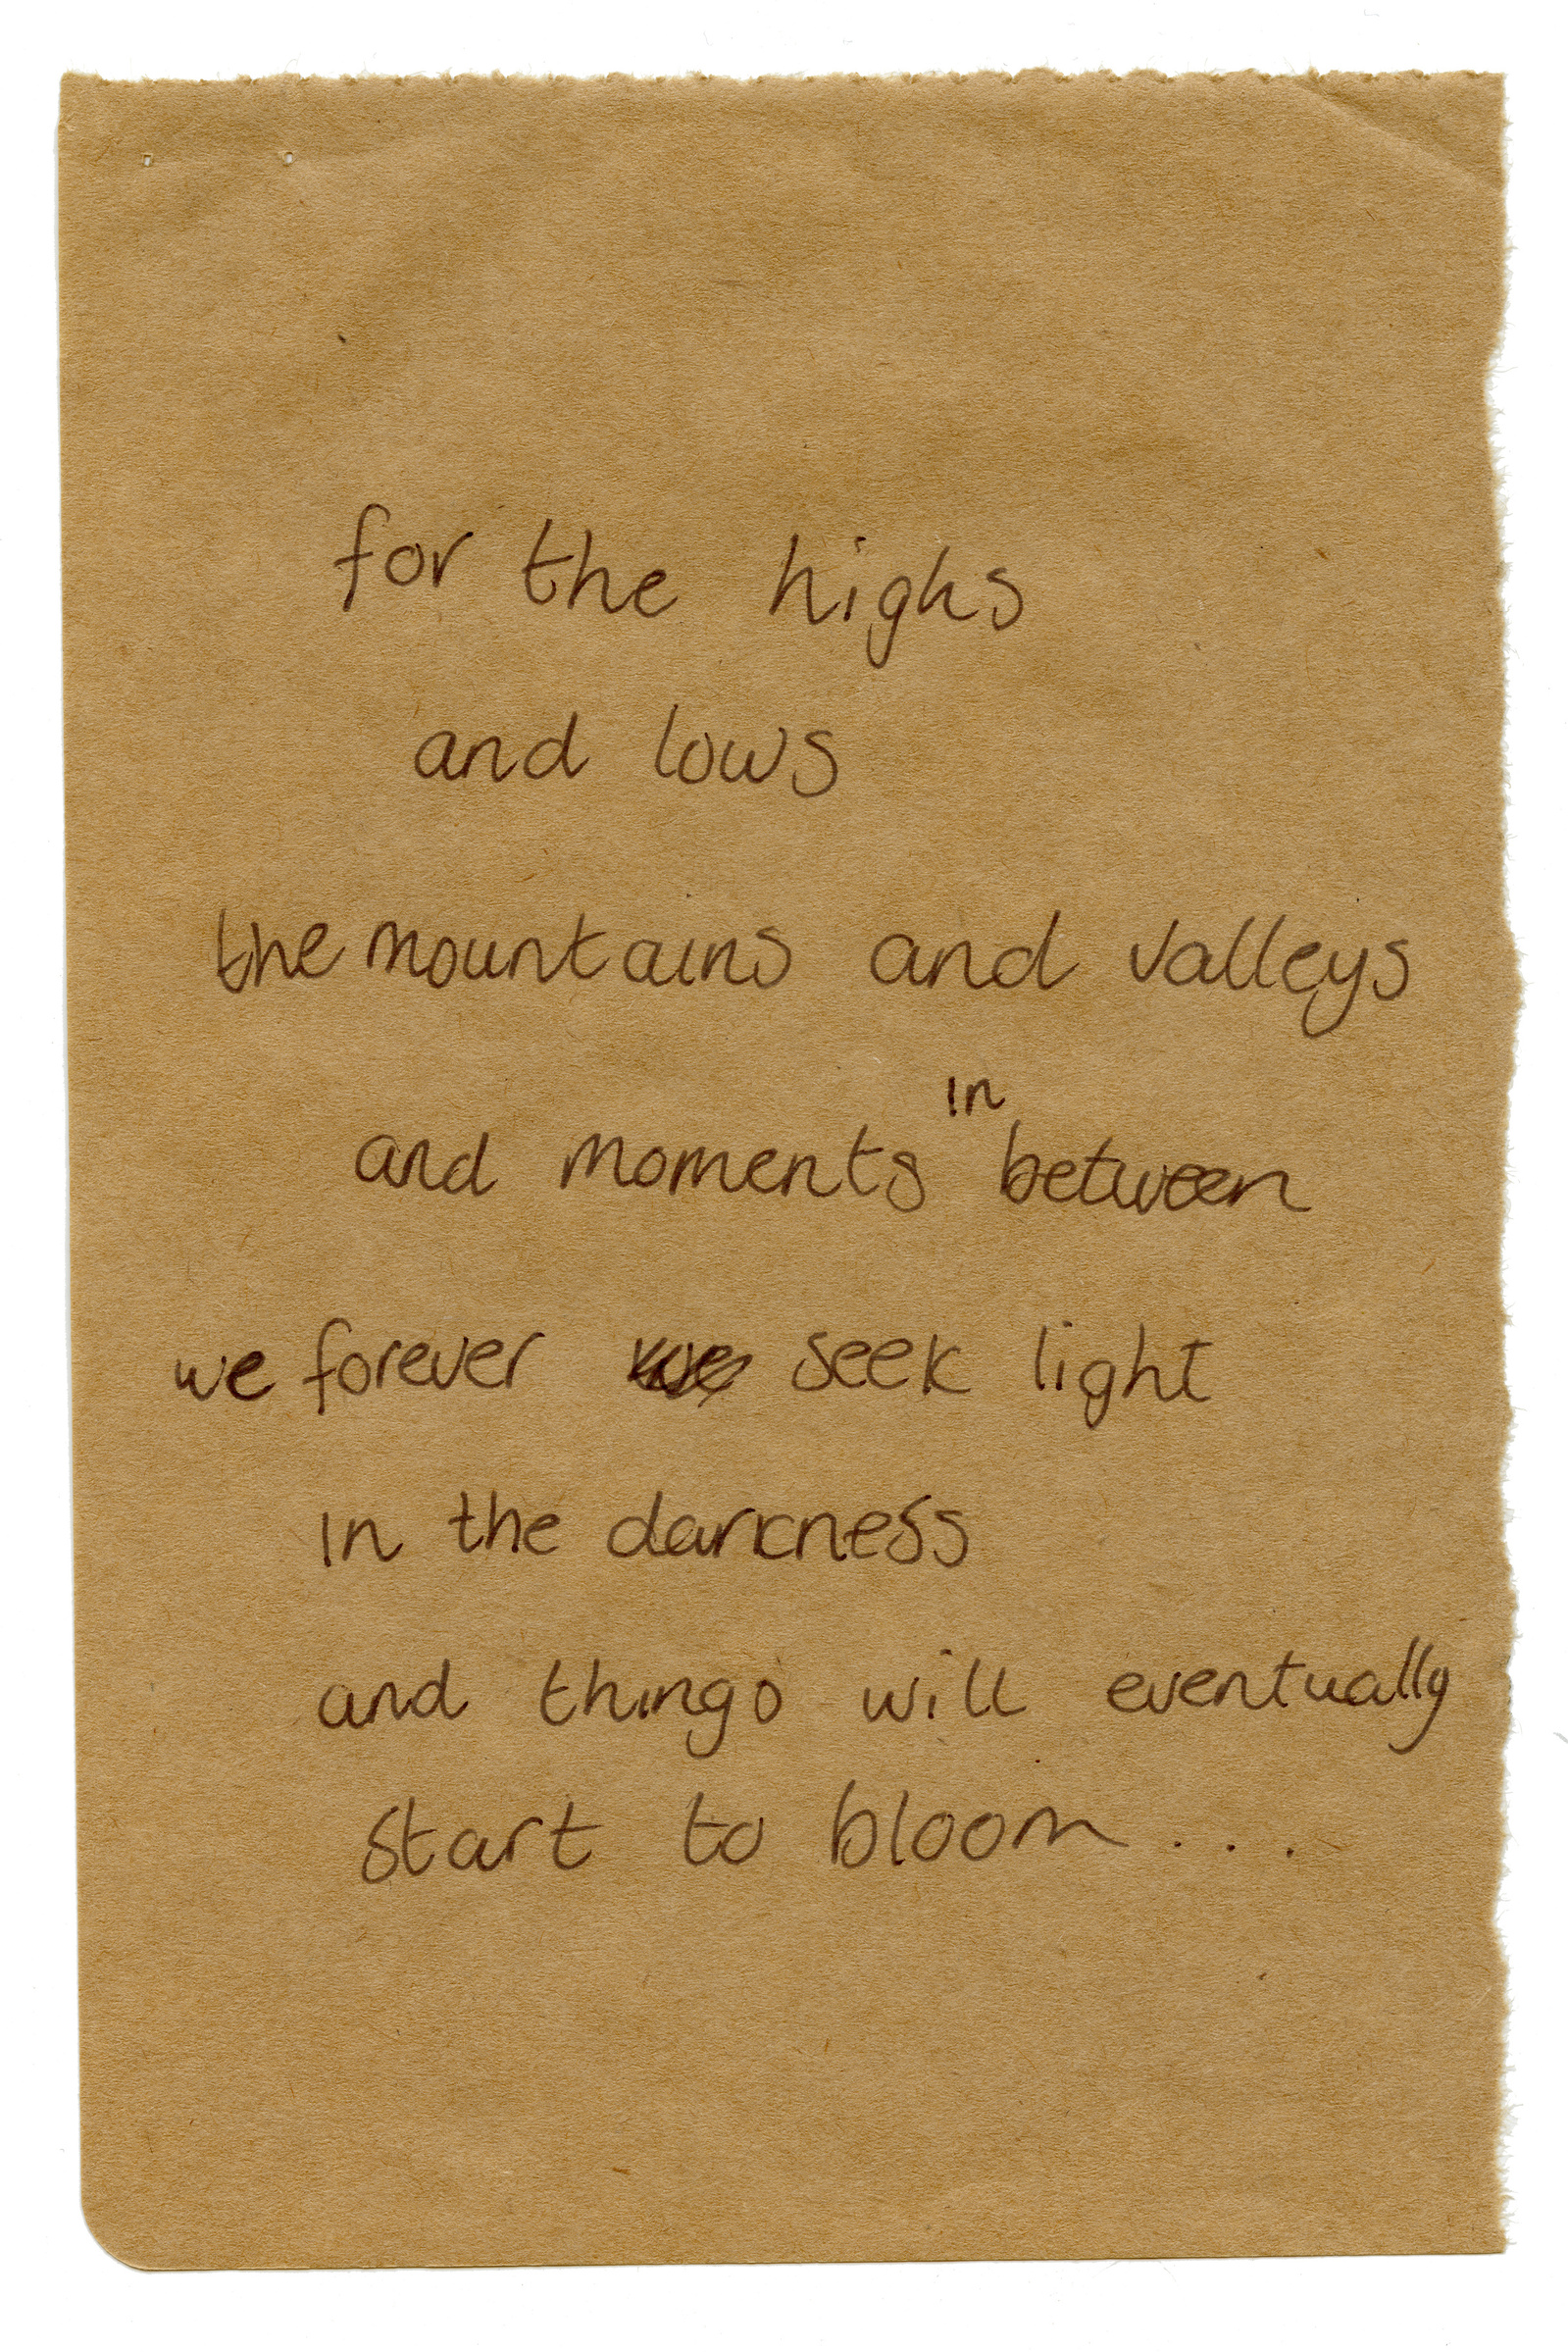 for the highs
and lows
the mountains and valleys
and moments in between
we forever we seek light
in the darkness
and things will eventually
start to bloom...